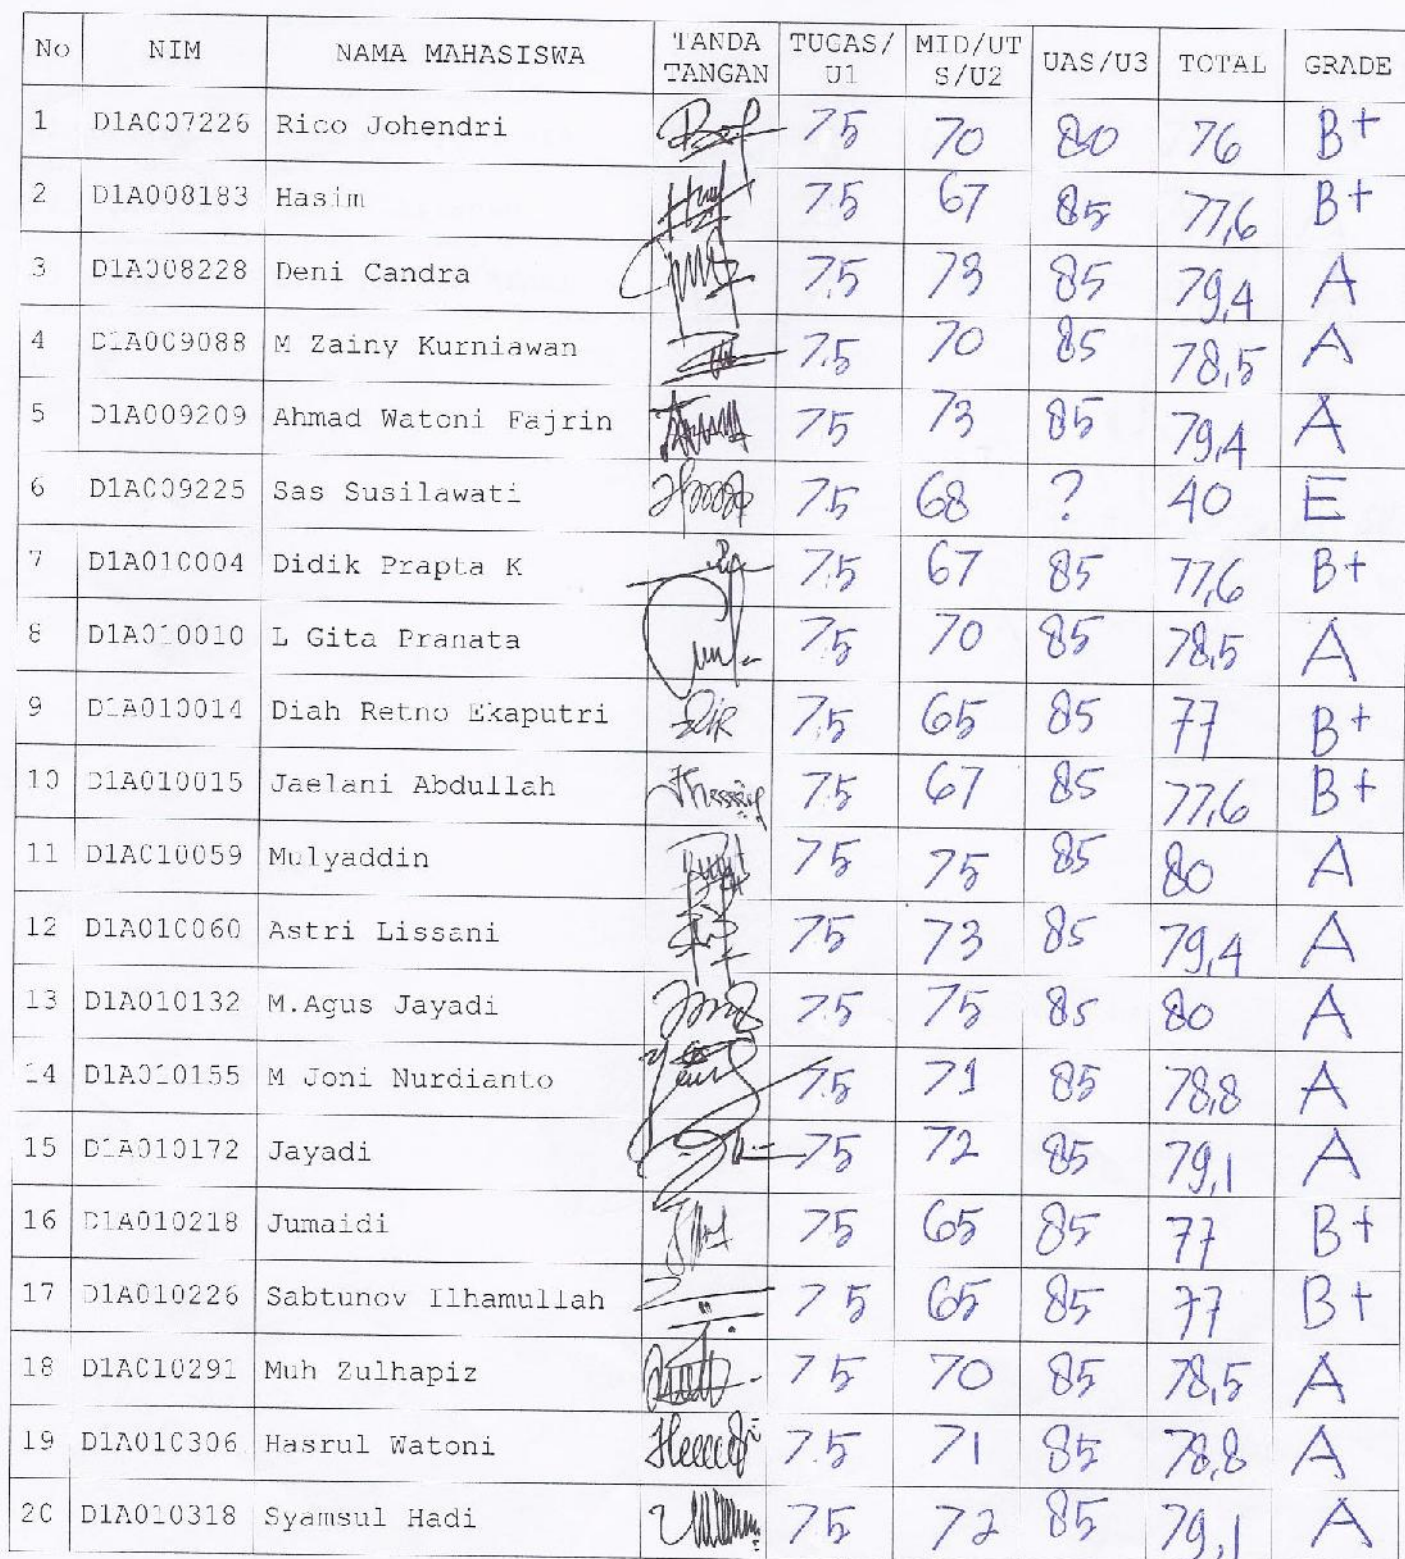 No NIM NAMA MAHASISWA TANDA TANGAN TUGAS/U1 MID/UTS/U2 UAS/U3 TOTAL GRADE
1 D1A007226 Rico Johendri 75 70 80 76 B+
2 D1A008183 Hasim 75 67 85 77,6 B+
3 D1A008228 Deni Candra 75 73 85 79,4 A
4 D1A009088 M Zainy Kurniawan 75 70 85 78,5 A
5 D1A009209 Ahmad Watoni Fajrin 75 73 85 79,4 A
6 D1A009225 Sas Susilawati 75 68 ? 40 E
7 D1A010004 Didik Prapta K 75 67 85 77,6 B+
8 D1A010010 L Gita Pranata 75 70 85 78,5 A
9 D1A010014 Diah Retno Ekaputri 75 65 85 77 B+
10 D1A010015 Jaelani Abdullah 75 67 85 77,6 B+
11 D1A010059 Mulyaddin 75 75 85 80 A
12 D1A010060 Astri Lissani 75 73 85 79,4 A
13 D1A010132 M.Agus Jayadi 75 75 85 80 A
14 D1A010155 M Joni Nurdianto 75 71 85 78,8 A
15 D1A010172 Jayadi 75 72 85 79,1 A
16 D1A010218 Jumaidi 75 65 85 77 B+
17 D1A010226 Sabtunov Ilhamullah 75 65 85 77 B+
18 D1A010291 Muh Zulhapiz 75 70 85 78,5 A
19 D1A010306 Hasrul Watoni 75 71 85 78,8 A
20 D1A010318 Syamsul Hadi 75 72 85 79,1 A